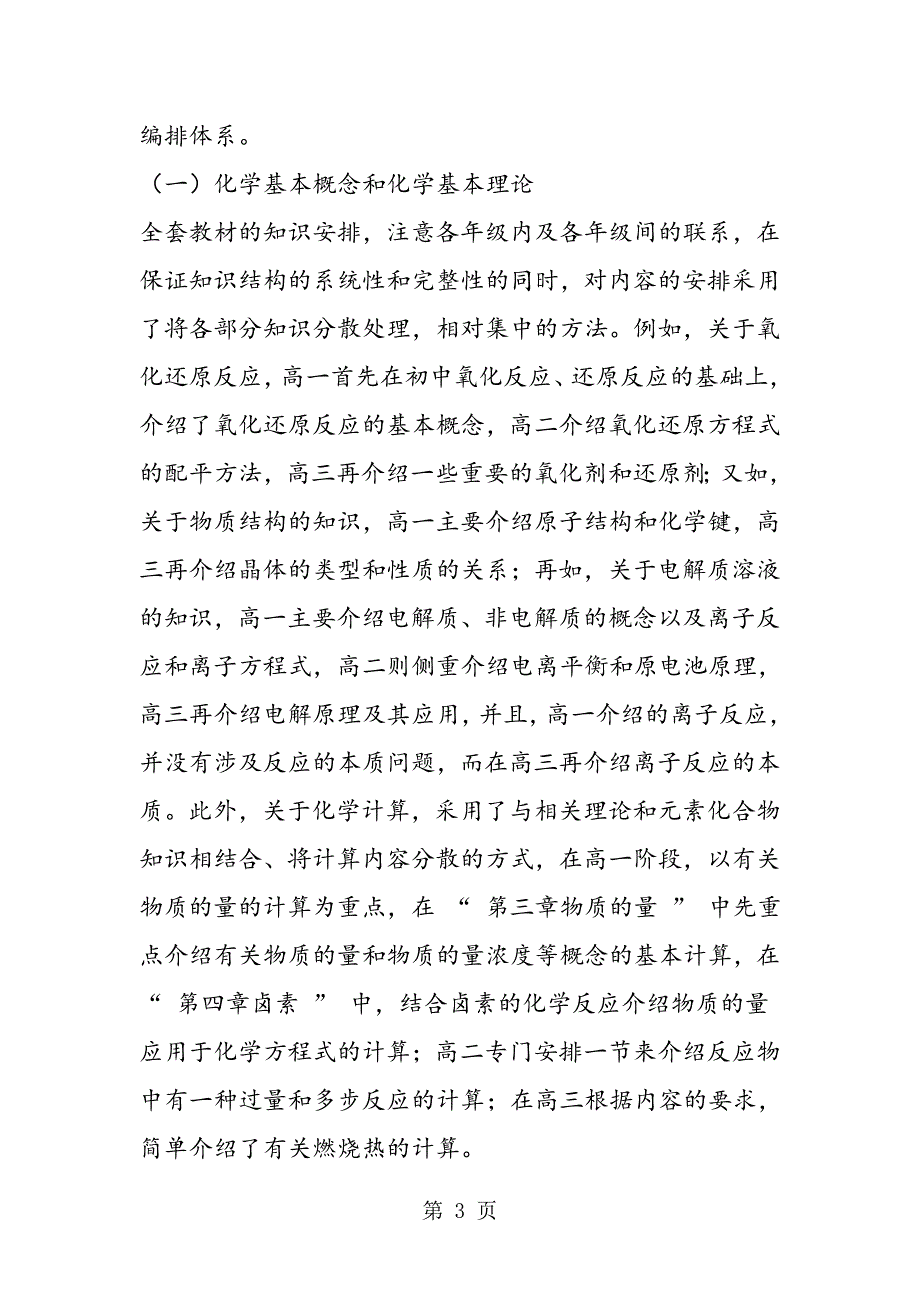 编排体系。
（一）化学基本概念和化学基本理论
全套教材的知识安排，注意各年级内及各年级间的联系，在
保证知识结构的系统性和完整性的同时，对内容的安排采用
了将各部分知识分散处理，相对集中的方法。例如，关于氧
化还原反应，高一首先在初中氧化反应、还原反应的基础上，
介绍了氧化还原反应的基本概念，高二介绍氧化还原方程式
的配平方法，高三再介绍一些重要的氧化剂和还原剂；又如，
关于物质结构的知识，高一主要介绍原子结构和化学键，高
三再介绍晶体的类型和性质的关系；再如，关于电解质溶液
的知识，高一主要介绍电解质、非电解质的概念以及离子反
应和离子方程式，高二则侧重介绍电离平衡和原电池原理，
高三再介绍电解原理及其应用，并且，高一介绍的离子反应，
并没有涉及反应的本质问题，而在高三再介绍离子反应的本
质。此外，关于化学计算，采用了与相关理论和元素化合物
知识相结合、将计算内容分散的方式，在高一阶段，以有关
物质的量的计算为重点，在 “ 第三章物质的量 ” 中先重
点介绍有关物质的量和物质的量浓度等概念的基本计算，在
“ 第四章卤素 ” 中，结合卤素的化学反应介绍物质的量
应用于化学方程式的计算；高二专门安排一节来介绍反应物
中有一种过量和多步反应的计算；在高三根据内容的要求，
简单介绍了有关燃烧热的计算。
第 3 页